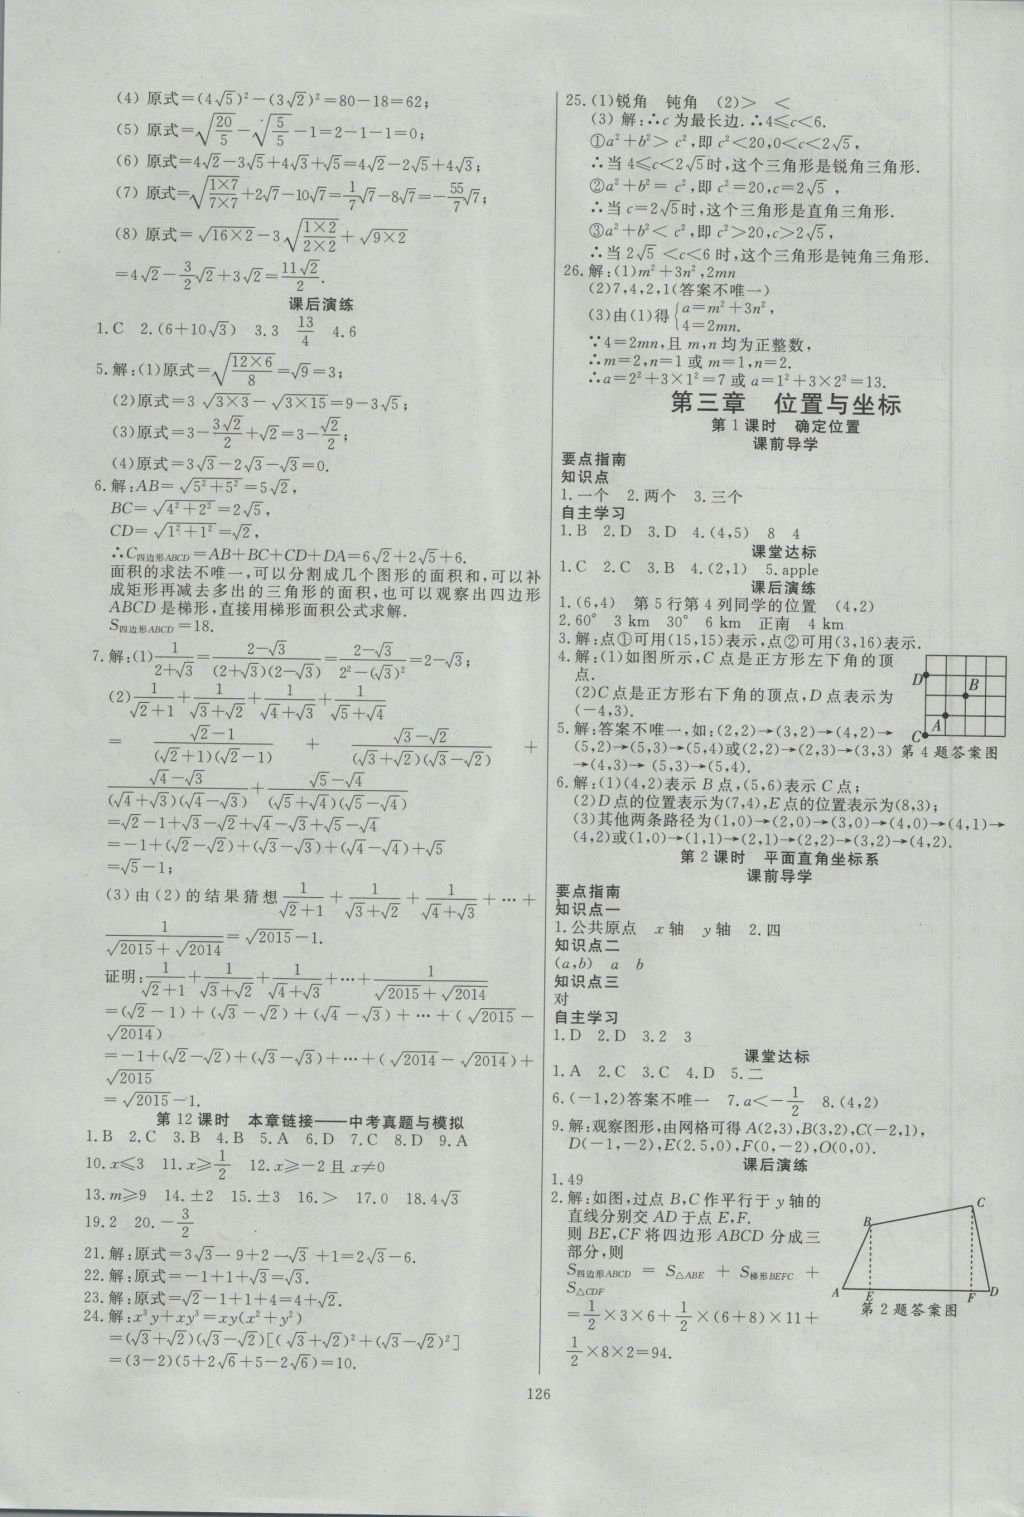 (4) 原式=(4√5)²-(3√2)²=80-18=62;
(5) 原式=√(20/5)-√(5/5)-1=2-1-1=0;
(6) 原式=4√2-3√5+4√3+√5=4√2-2√5+4√3;
(7) 原式=√((1×7)/(7×7))+2√7-10√7=(1/7)√7-8√7=-(55/7)√7;
(8) 原式=√(16×2)-3√((1×2)/(2×2))+√(9×2)
=4√2-(3/2)√2+3√2=(11√2)/2.
课后演练
1.C 2.(6+10√3) 3.3 13/4 4.6
5.解:(1)原式=√((12×6)/8)=√9=3;
(2)原式=3√(3×3)-√(3×15)=9-3√5;
(3)原式=3-(3√2)/2+√2=3-√2/2;
(4)原式=3√3-2√3-√3=0.
6.解:AB=√(5²+5²)=5√2,
BC=√(4²+2²)=2√5,
CD=√(1²+1²)=√2,
∴C四边形ABCD=AB+BC+CD+DA=6√2+2√5+6.
面积的求法不唯一,可以分割成几个图形的面积和,可以补
成矩形再减去多出的三角形的面积,也可以观察出四边形
ABCD是梯形,直接用梯形面积公式求解.
S四边形ABCD=18.
7.解:(1)1/(2+√3)=(2-√3)/((2+√3)(2-√3))=(2-√3)/(2²-(√3)²)=2-√3;
(2)1/(√2+1)+1/(√3+√2)+1/(√4+√3)+1/(√5+√4)
=(√2-1)/((√2+1)(√2-1))+(√3-√2)/((√3+√2)(√3-√2))+
(√4-√3)/((√4+√3)(√4-√3))+(√5-√4)/((√5+√4)(√5-√4))
=√2-1+√3-√2+√4-√3+√5-√4
=-1+(√2-√2)+(√3-√3)+(√4-√4)+√5
=√5-1;
(3)由(2)的结果猜想1/(√2+1)+1/(√3+√2)+1/(√4+√3)+…+
1/(√2015+√2014)=√2015-1.
证明:1/(√2+1)+1/(√3+√2)+1/(√4+√3)+…+1/(√2015+√2014)
=(√2-1)+(√3-√2)+(√4-√3)+…+(√2015-
√2014)
=-1+(√2-√2)+(√3-√3)+…+(√2014-√2014)+
√2015
=√2015-1.
第12课时 本章链接——中考真题与模拟
1.B 2.C 3.B 4.B 5.A 6.D 7.C 8.D 9.A
10.x≤3 11.x≥1/2 12.x≥-2且x≠0
13.m≥9 14.±2 15.±3 16.> 17.0 18.4√3
19.2 20.-3/2
21.解:原式=3√3-9+2-√3+1=2√3-6.
22.解:原式=-1+1+√3=√3.
23.解:原式=√2-1+1+4=4+√2.
24.解:x³y+xy³=xy(x²+y²)
=(√3+√2)(√3-√2)[(√3+√2)²+(√3-√2)²]
=(3-2)(5+2√6+5-2√6)=10.
25.(1)锐角 钝角 (2)> <
(3) 解:∴c为最长边.∴4≤c<6.
①a²+b²>c²,即c²<20,0<c<2√5,
∴当4≤c<2√5时,这个三角形是锐角三角形.
②a²+b²=c²,即c²=20,c=2√5,
∴当c=2√5时,这个三角形是直角三角形.
③a²+b²<c²,即c²>20,c>2√5,
∴当2√5<c<6时,这个三角形是钝角三角形.
26.解:(1)m²+3n²,2mn
(2)7,4,2,1(答案不唯一)
(3)由(1)得{a=m²+3n²,
4=2mn.
∵4=2mn,且m,n均为正整数,
∴m=2,n=1或m=1,n=2.
∴a=2²+3×1²=7或a=1²+3×2²=13.
第三章 位置与坐标
第1课时 确定位置
课前导学
要点指南
知识点
1.一个 2.两个 3.三个
自主学习
1.B 2.D 3.D 4.(4,5) 8 4
课堂达标
1.C 2.C 3.B 4.(2,1) 5.apple
课后演练
1.(6,4) 第5行第4列同学的位置 (4,2)
2.60° 3 km 30° 6 km 正南 4 km
3.解:点①可用(15,15)表示,点②可用(3,16)表示.
4.解:(1)如图所示,C点是正方形左下角的顶
点.
(2)C点是正方形右下角的顶点,D点表示为
(-4,3).
D
B
A
C
第4题答案图
5.解:答案不唯一,如:(2,2)→(3,2)→(4,2)→
(5,2)→(5,3)→(5,4)或(2,2)→(2,3)→(3,3)
→(4,3)→(5,3)→(5,4).
6.解:(1)(4,2)表示B点,(5,6)表示C点;
(2)D点的位置表示为(7,4),E点的位置表示为(8,3);
(3)其他两条路径为(1,0)→(2,0)→(3,0)→(4,0)→(4,1)→
(4,2)或(1,0)→(1,1)→(2,1)→(2,2)→(3,2)→(4,2).
第2课时 平面直角坐标系
课前导学
要点指南
知识点一
1.公共原点 x轴 y轴 2.四
知识点二
(a,b) a b
知识点三
对
自主学习
1.D 2.D 3.2 3
课堂达标
1.A 2.C 3.C 4.D 5.二
6.(-1,2)答案不唯一 7.a<-1/2 8.(4,2)
9.解:观察图形,由网格可得A(2,3),B(3,2),C(-2,1),
D(-1,-2),E(2.5,0),F(0,-2),O(0,0).
课后演练
1.49
2.解:如图,过点B,C作平行于y轴的
直线分别交AD于点E,F.
则BE,CF将四边形ABCD分成三
部分,则
S四边形ABCD=S△ABE+S梯形BEFC+
S△CDF
=1/2×3×6+1/2×(6+8)×11+
1/2×8×2=94.
C
B
A
E
F
D
第2题答案图
126